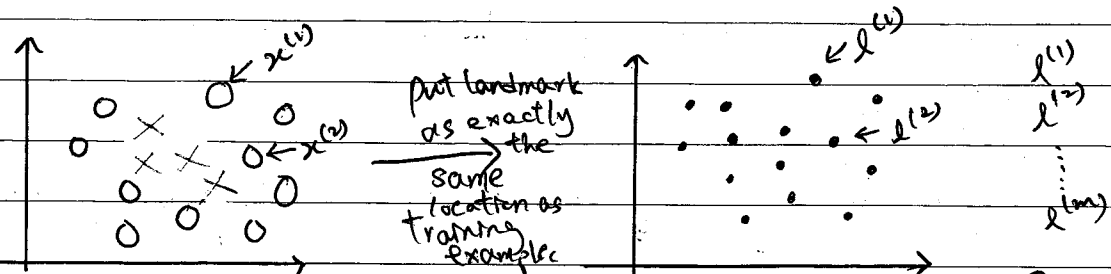 x^(1)
x^(2)
put landmark
as exactly
the
same
location as
training
examples
l^(1)
l^(2)
l^(1)
l^(2)
l^(m)